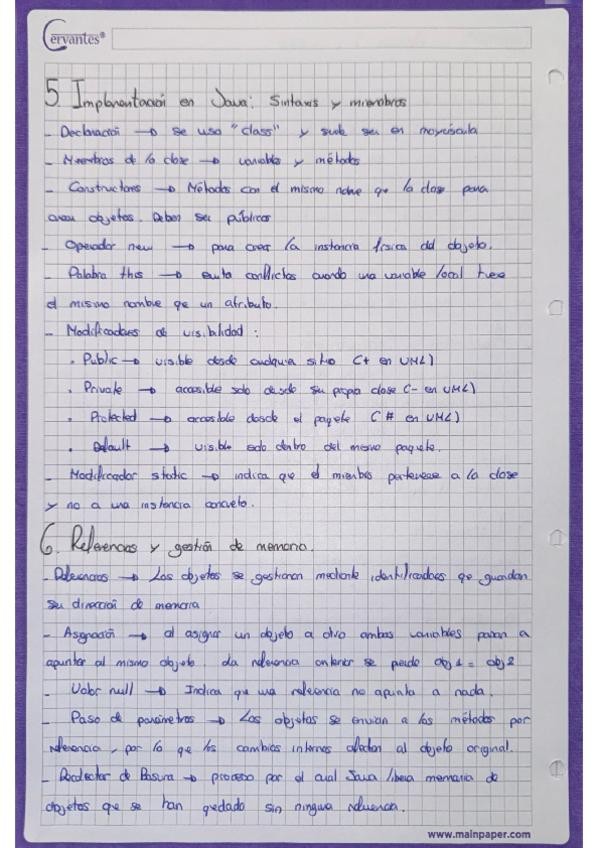 Cervantes®
5. Implementación en Java: Sintaxis y miembros
- Declaración → se usa "class" y suele ser en mayúscula
- Miembros de la clase → variables y métodos
- Constructores → Métodos con el mismo nombre que la clase para
crear objetos. Deben ser públicos
- Operador new → para crear la instancia física del objeto.
- Palabra this → evita conflictos cuando una variable local tiene
el mismo nombre que un atributo.
- Modificadores de visibilidad :
• Public → visible desde cualquier sitio (+ en UML)
• Private → accesible solo desde su propia clase (- en UML)
• Protected → accesible desde el paquete (# en UML)
• Default → visible solo dentro del mismo paquete.
- Modificador static → indica que el miembro pertenece a la clase
y no a una instancia concreta.
6. Referencias y gestión de memoria.
- Referencias → Los objetos se gestionan mediante identificadores que guardan
su dirección de memoria
- Asignación → al asignar un objeto a otro ambas variables pasan a
apuntar al mismo objeto. La referencia anterior se pierde obj1 = obj2
- Valor null → Indica que una referencia no apunta a nada.
- Paso de parámetros → Los objetos se envían a los métodos por
referencia, por lo que los cambios internos afectan al objeto original.
- Recolector de Basura → proceso por el cual Java libera memoria de
objetos que se han quedado sin ninguna referencia.
www.mainpaper.com